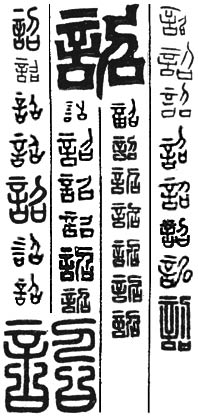 詔詔詔詔詔詔詔詔
詔
詔詔詔詔詔詔詔
詔詔詔詔詔詔
詔詔詔詔詔詔詔
詔